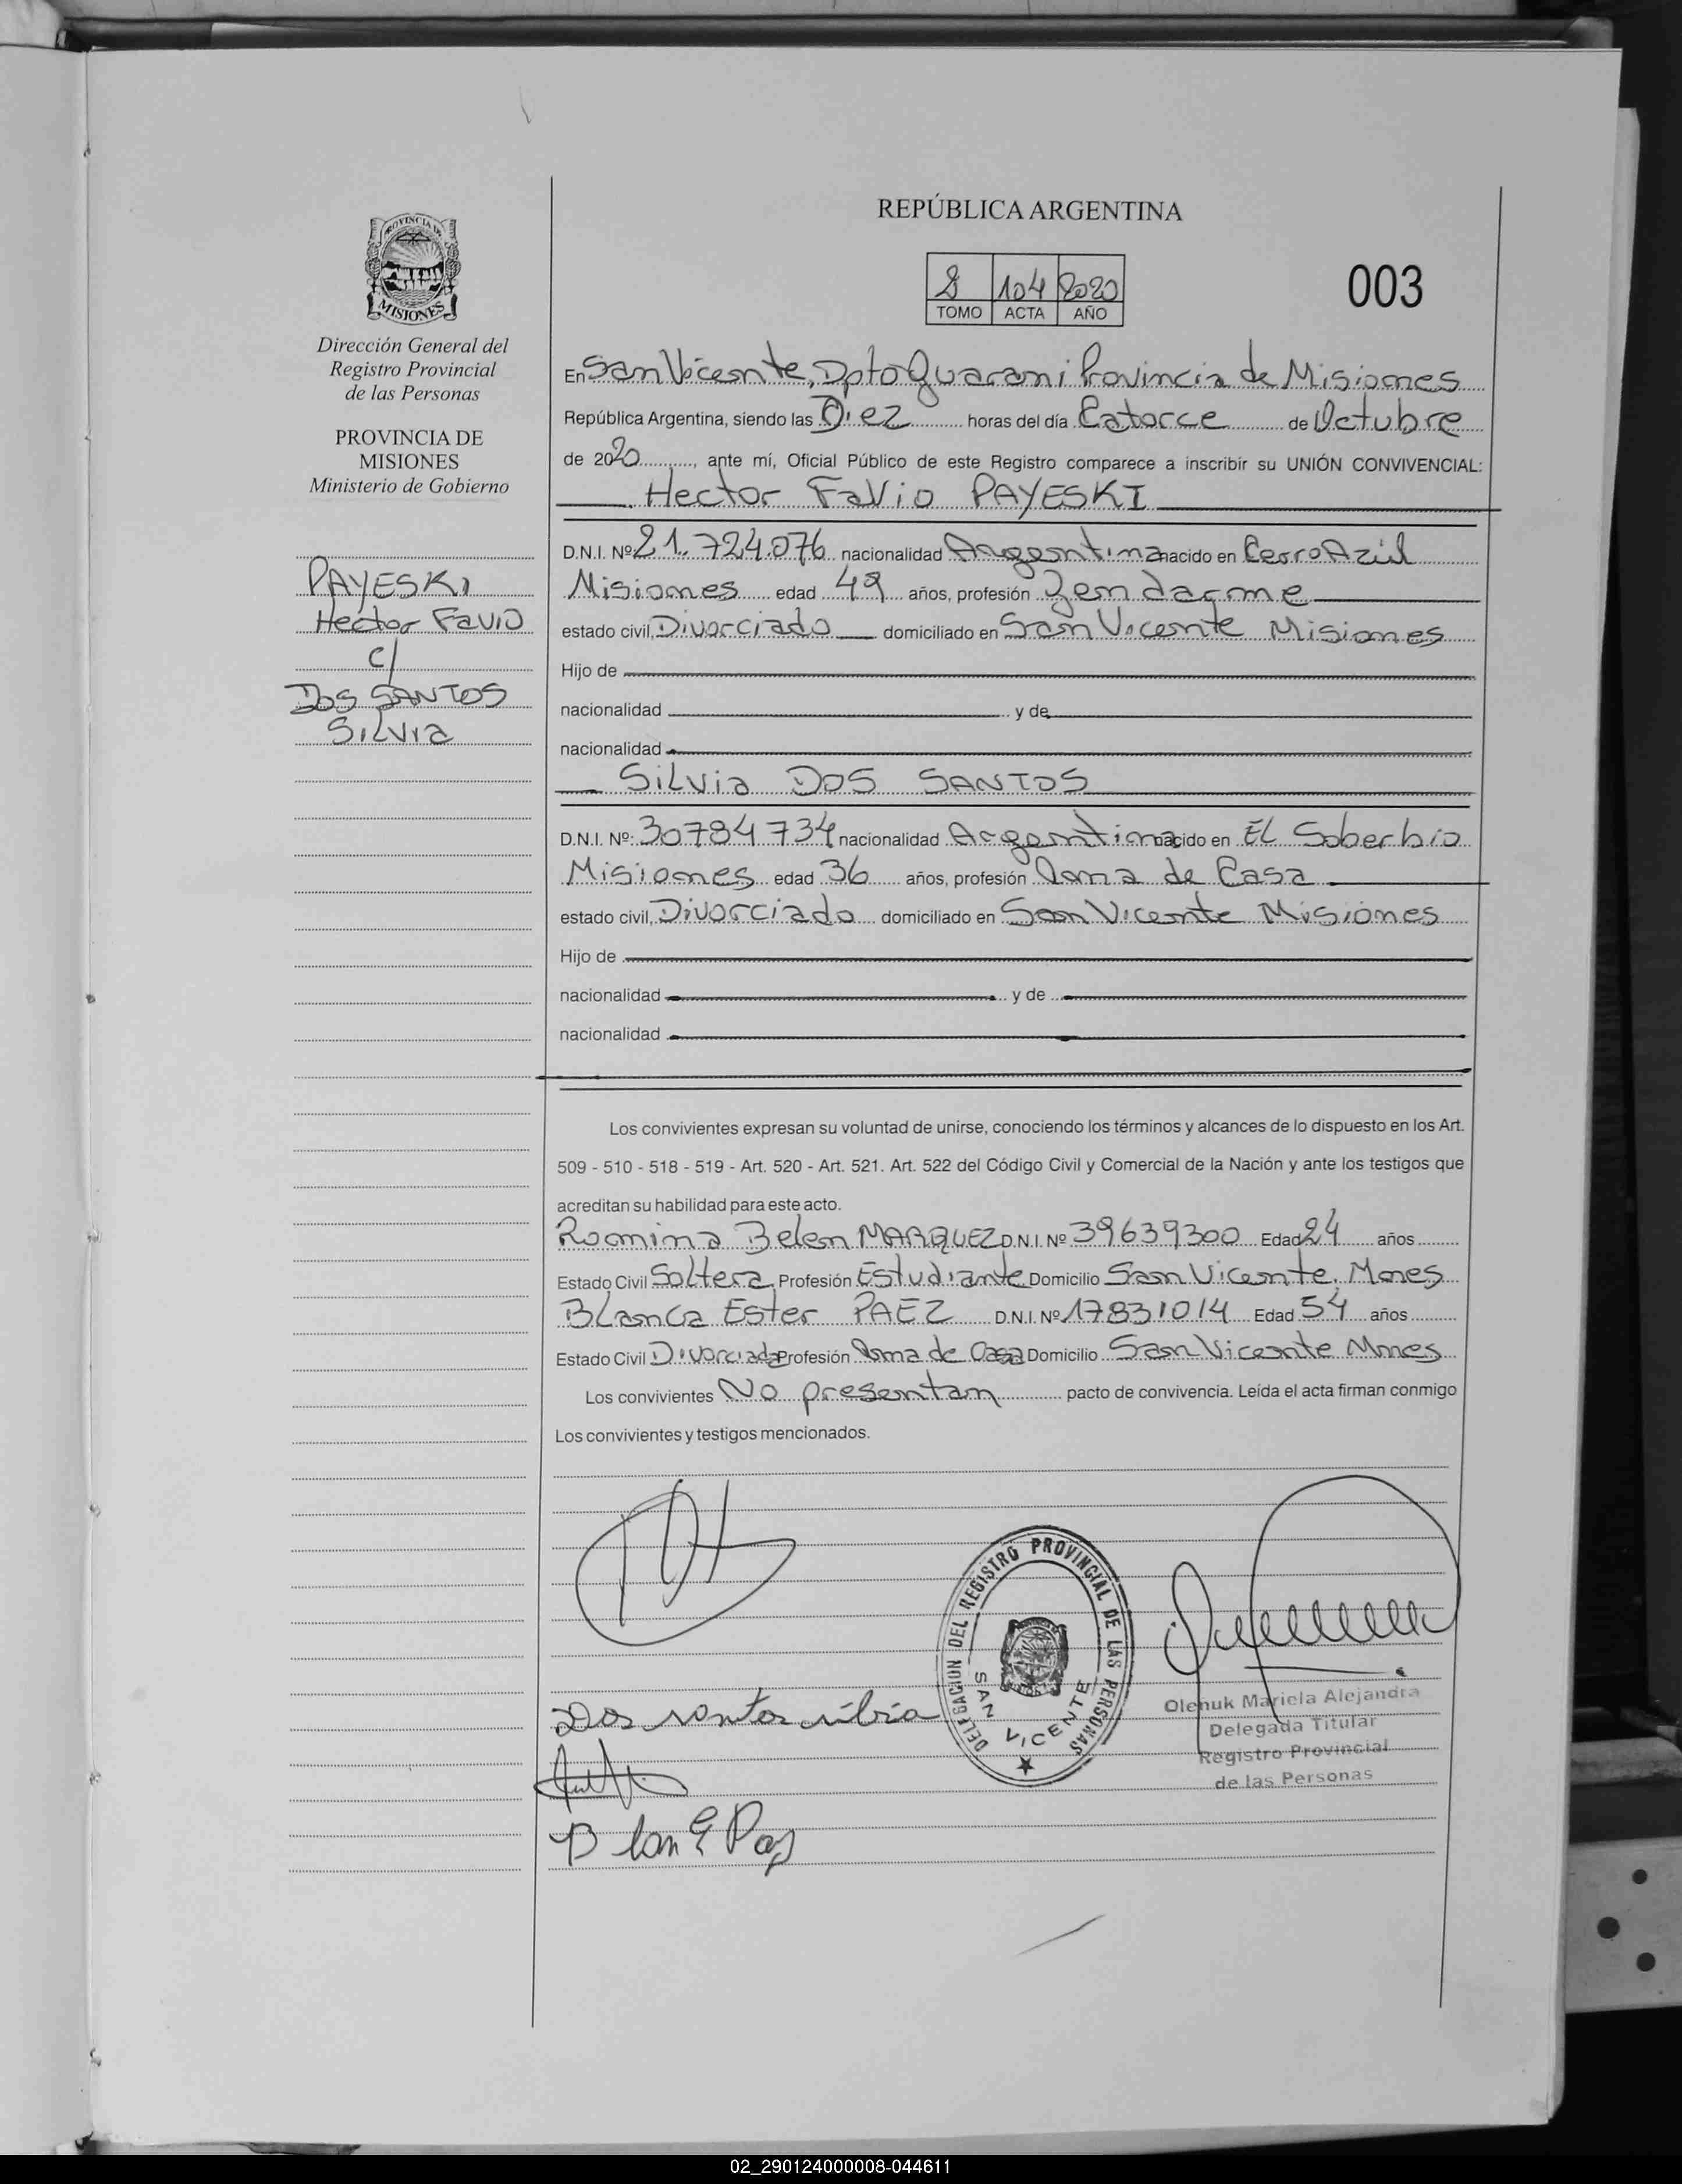 REPÚBLICA ARGENTINA
104 2020
TOMO ACTA AÑO
003
PROVINCIA DE
MISIONES
Dirección General del
Registro Provincial
de las Personas
PROVINCIA DE
MISIONES
Ministerio de Gobierno
PAYESKI
Hector Favio
c/
DOS SANTOS
Silvia
En San Vicente, Dpto Guarani Provincia de Misiones
República Argentina, siendo las Diez horas del día Catorce de Octubre
de 2020, ante mí, Oficial Público de este Registro comparece a inscribir su UNIÓN CONVIVENCIAL:
Hector Favio PAYESKI
D.N.I. Nº 21.724.076 nacionalidad Argentina nacido en Cerro Azúl
Misiones edad 49 años, profesión Gendarme
estado civil Divorciado domiciliado en San Vicente Misiones
Hijo de
nacionalidad y de
nacionalidad
Silvia DOS SANTOS
D.N.I. Nº: 30784734 nacionalidad Argentina nacido en EL Soberbio
Misiones edad 36 años, profesión Ama de Casa
estado civil, Divorciado domiciliado en San Vicente Misiones
Hijo de
nacionalidad y de
nacionalidad
Los convivientes expresan su voluntad de unirse, conociendo los términos y alcances de lo dispuesto en los Art.
509 - 510 - 518 - 519 - Art. 520 - Art. 521. Art. 522 del Código Civil y Comercial de la Nación y ante los testigos que
acreditan su habilidad para este acto.
Romina Belen MARQUEZ D.N.I. Nº 39639300 Edad 24 años
Estado Civil Soltera Profesión Estudiante Domicilio San Vicente, Mnes
Blanca Ester PAEZ D.N.I. Nº 17831014 Edad 54 años
Estado Civil Divorciada Profesión Ama de Casa Domicilio San Vicente Mnes
Los convivientes No presentan pacto de convivencia. Leída el acta firman conmigo
Los convivientes y testigos mencionados.
Dos santos silvia
DELEGACION DEL REGISTRO PROVINCIAL DE LAS PERSONAS
SAN VICENTE
Olenuk Mariela Alejandra
Delegada Titular
Registro Provincial
de las Personas
02_290124000008-044611